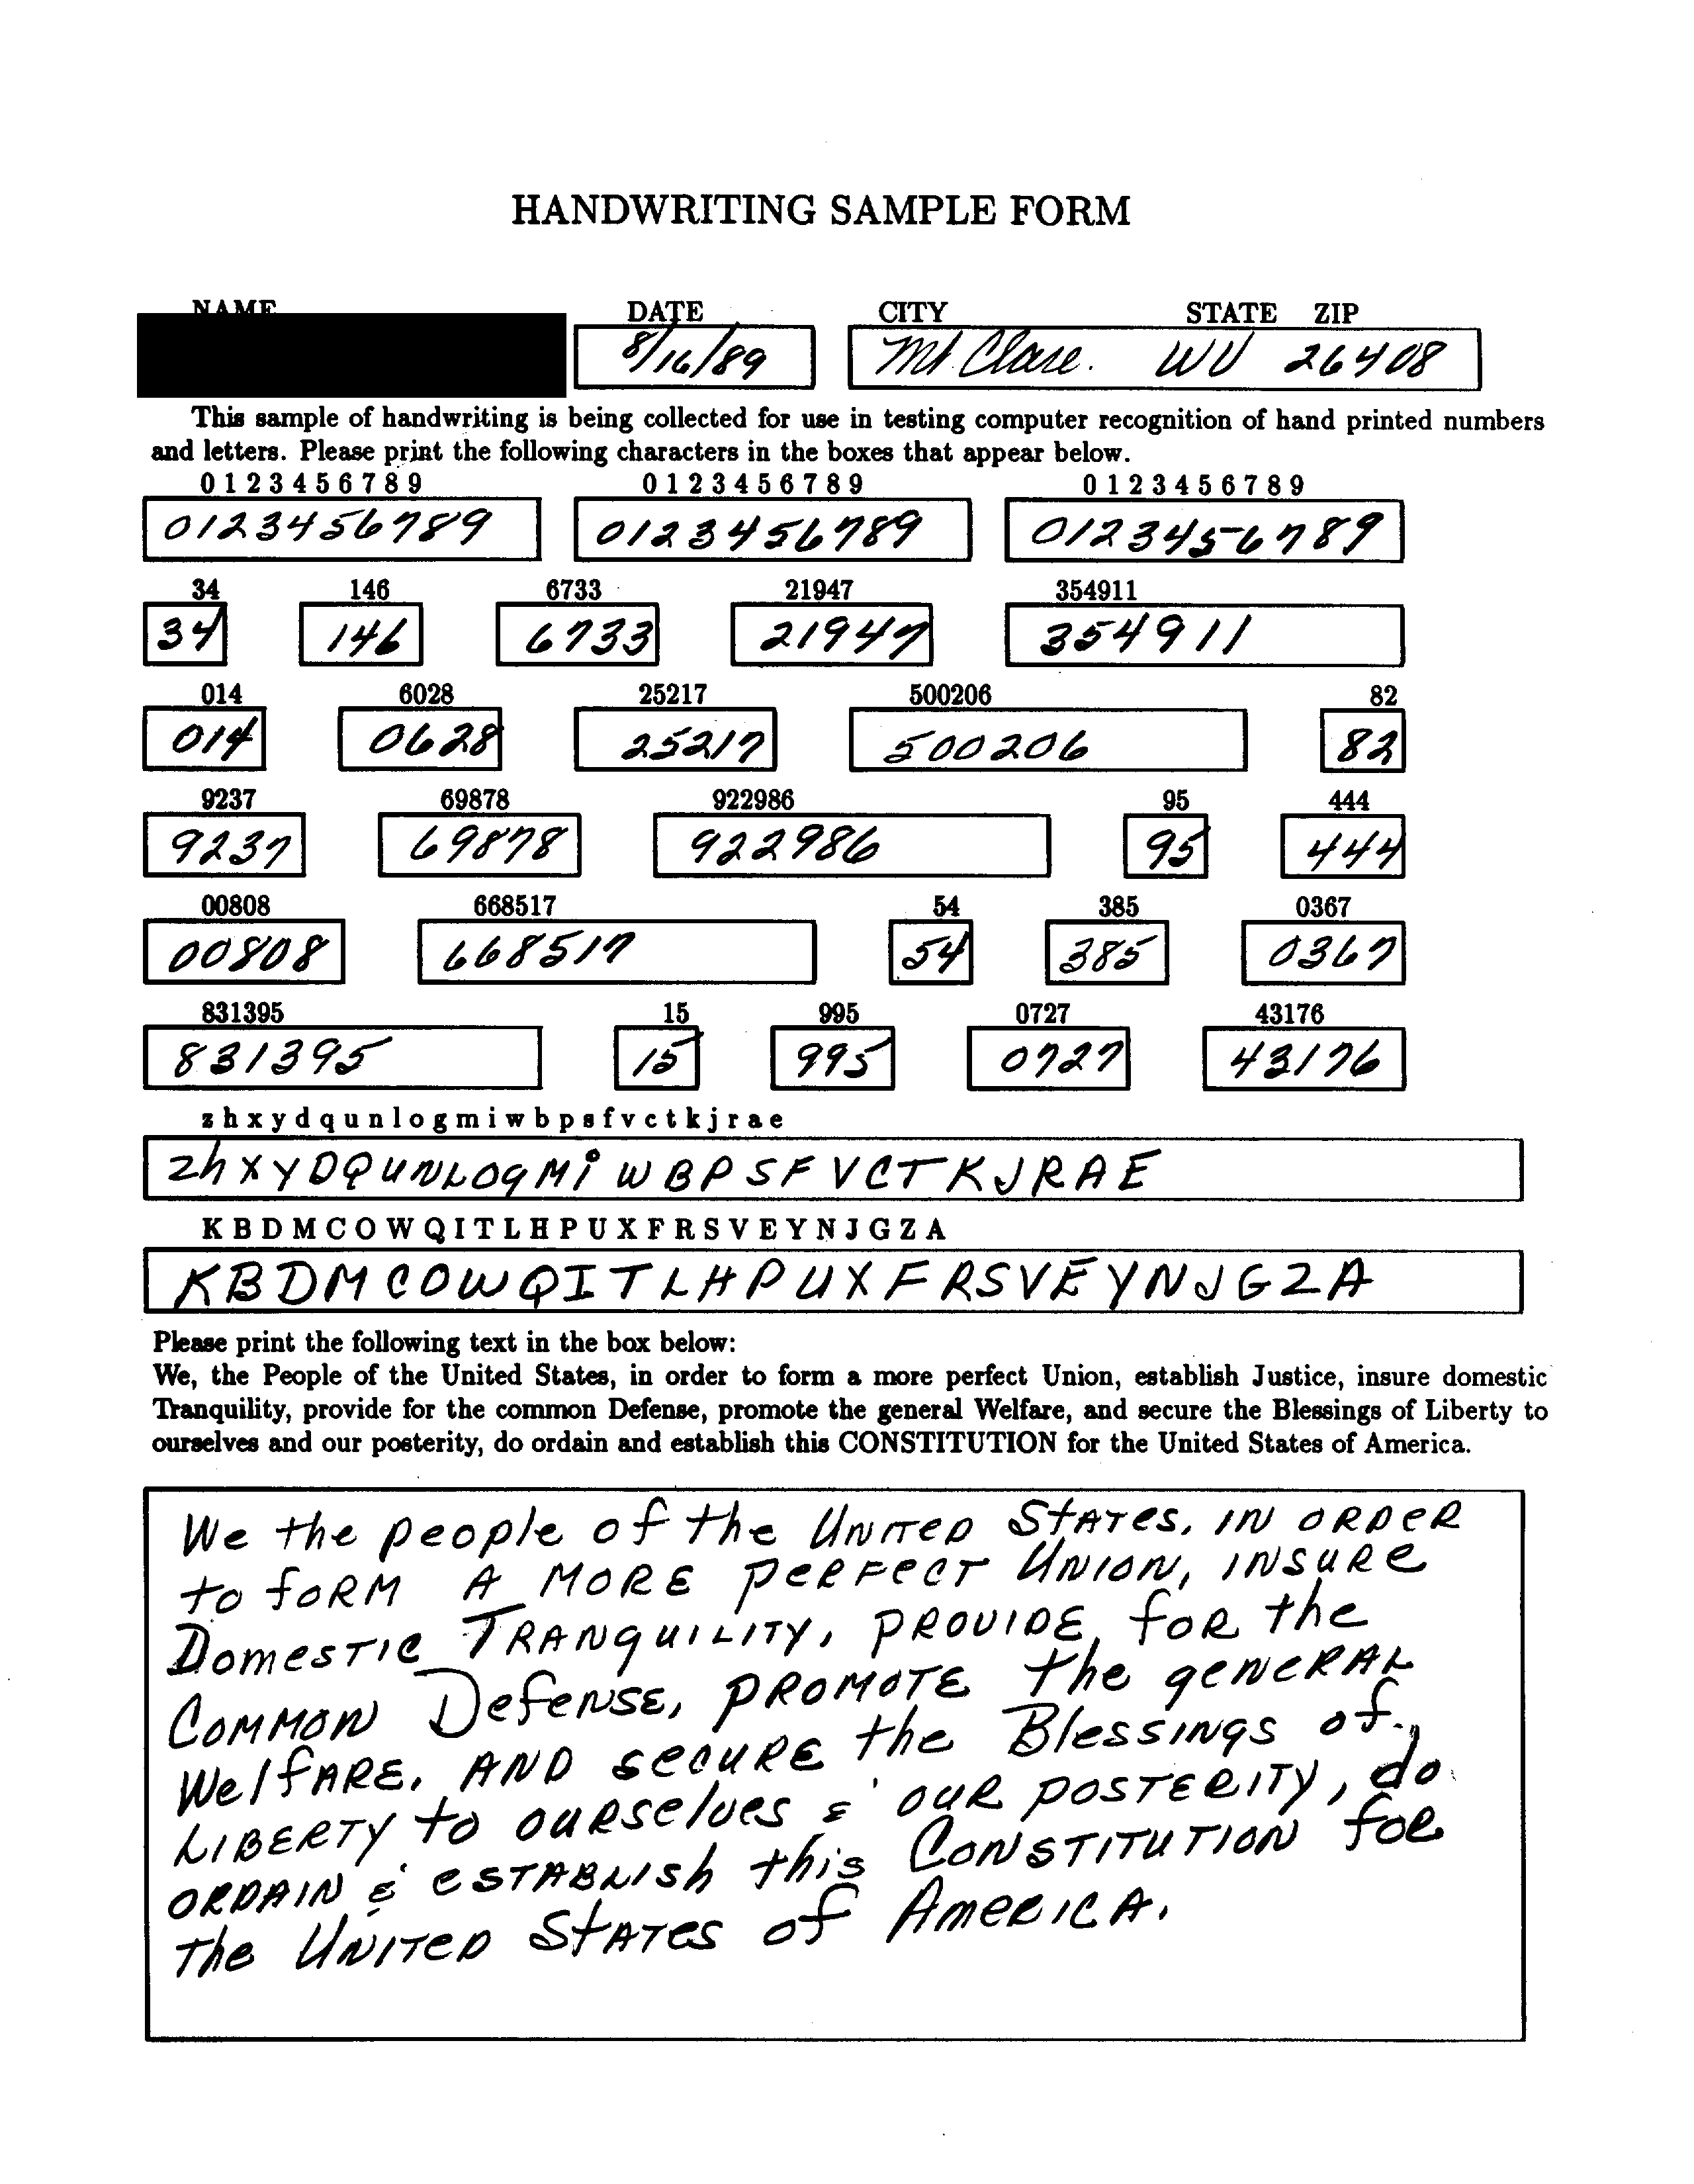 HANDWRITING SAMPLE FORM
NAME DATE CITY STATE ZIP
8/16/89 Mt. Clare. WV 26408
This sample of handwriting is being collected for use in testing computer recognition of hand printed numbers
and letters. Please print the following characters in the boxes that appear below.
0 1 2 3 4 5 6 7 8 9 0 1 2 3 4 5 6 7 8 9 0 1 2 3 4 5 6 7 8 9
0123456789 0123456789 0123456789
34 146 6733 21947 354911
34 146 6733 21947 354911
014 6028 25217 500206 82
014 0628 25217 500206 82
9237 69878 922986 95 444
9237 69878 922986 95 444
00808 668517 54 385 0367
00808 668517 54 385 0367
831395 15 995 0727 43176
831395 15 995 0727 43176
z h x y d q u n l o g m i w b p s f v c t k j r a e
zhXYDQUNLOgMi WBPSFVCTKJRAE
K B D M C O W Q I T L H P U X F R S V E Y N J G Z A
KBDMCOWQITLHPUXFRSVEYNJGZA
Please print the following text in the box below:
We, the People of the United States, in order to form a more perfect Union, establish Justice, insure domestic
Tranquility, provide for the common Defense, promote the general Welfare, and secure the Blessings of Liberty to
ourselves and our posterity, do ordain and establish this CONSTITUTION for the United States of America.
We the people of the UNITeD StATes, IN ORDeR
to foRM A MORE peRFeCT UNION, INSURe
DomesTIC TRANqUILITY, PROVIDE, foR the
COMMON DefeNSE, PROMOTE the geNeRAL
WelfARE, AND seCURE the BlessINgs of
LIBERTY to OURselves & OUR POSTERITY, do
ORDAIN & eSTABLISh this CONSTITUTION foR
the UNITeD StATes of AmeRICA.